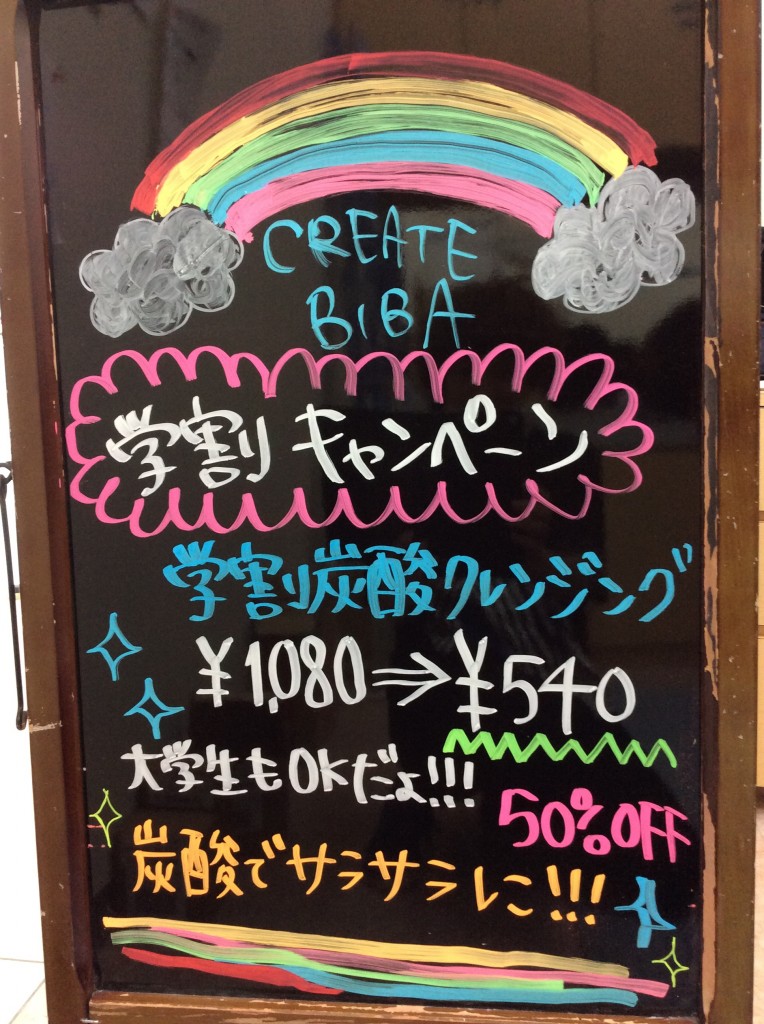 CREATE
BIBA
学割キャンペーン
学割炭酸クレンジング
¥1,080⇒¥540
大学生もOKだよ!!!
50%OFF
炭酸でサラサラに!!!